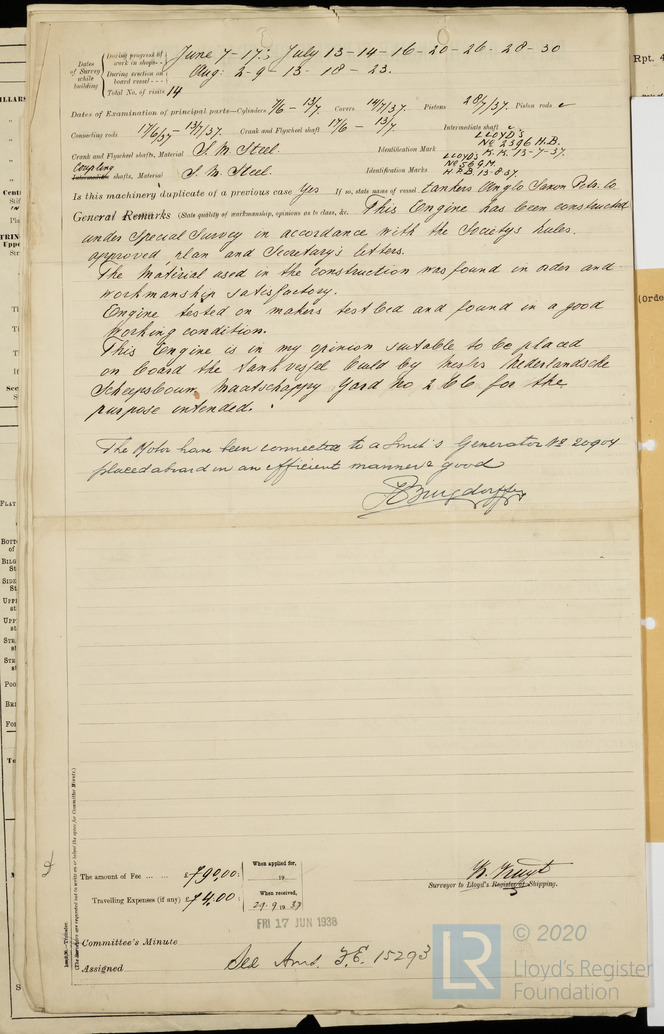 Rpt. 4
Dates of Survey while building
During progress of work in shops - - June 7 - 17; July 13 - 14 - 16 - 20 - 26 - 28 - 30
During erection on board vessel - - - Aug: 2 - 9 - 13 - 18 - 23.
Total No. of visits 14
Dates of Examination of principal parts—Cylinders 7/6 - 13/7 Covers 14/7/37. Pistons 28/7/37. Piston rods
Connecting rods 17/6/37 - 13/7/37. Crank and Flywheel shaft 17/6 - 13/7 Intermediate shaft
Crank and Flywheel shafts, Material S. M. Steel. Identification Mark LLOYD'S NE 2396 H.B. K.K. 13-7-37.
Coupling
Intermediate shafts, Material S. M. Steel. Identification Marks LLOYDS NE 56 G.M. H.P.B. 13-8-37.
Is this machinery duplicate of a previous case Yes If so, state name of vessel Tankers Anglo Saxon Petr. Co
General Remarks (State quality of workmanship, opinions as to class, &c. This Engine has been constructed
under Special Survey in accordance with the Society's rules.
approved plan and Secretary's letters.
The material used in the construction was found in order and
workmanship satisfactory.
Engine tested on makers testbed and found in a good
working condition.
This Engine is in my opinion suitable to be placed
on board the tankvessel build by Messrs Nederlandsche
Scheepsbouw Maatschappy Yard No 266 for the
purpose intended.
The Motor have been connected to a Smit's Generator No 20904
placed aboard in an efficient manner & good
(The Surveyors are requested not to write on or below the space for Committee Minute.)
The amount of Fee ... ... £ 790.00 :
When applied for, 19
Travelling Expenses (if any) £ 74.00 :
When received, 29.9.19 37
Surveyor to Lloyd's Register of Shipping.
FRI 17 JUN 1938
Committee's Minute
Assigned See Amd. F.E. 15293
LR
© 2020
Lloyd's Register
Foundation